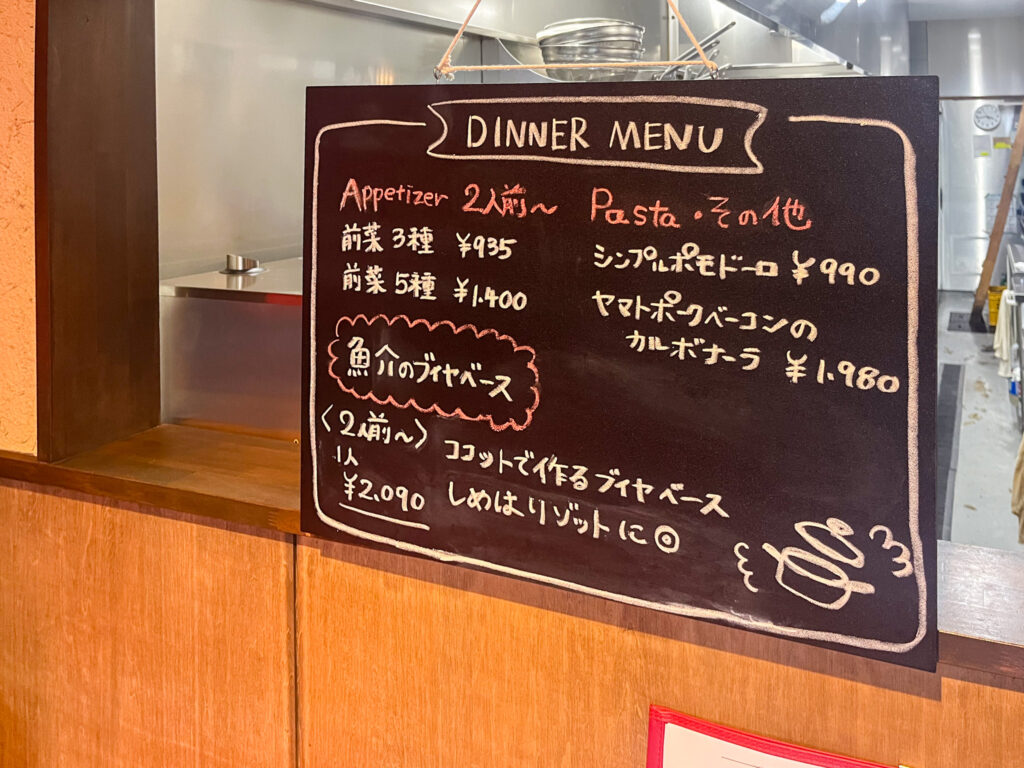 DINNER MENU
Appetizer 2人前〜
前菜3種 ¥935
前菜5種 ¥1.400
Pasta・その他
シンプルポモドーロ ¥990
ヤマトポークベーコンの
カルボナーラ ¥1.980
魚介のブイヤベース
〈2人前〜〉
1人
¥2.090
ココットで作るブイヤベース
しめはリゾットに◎